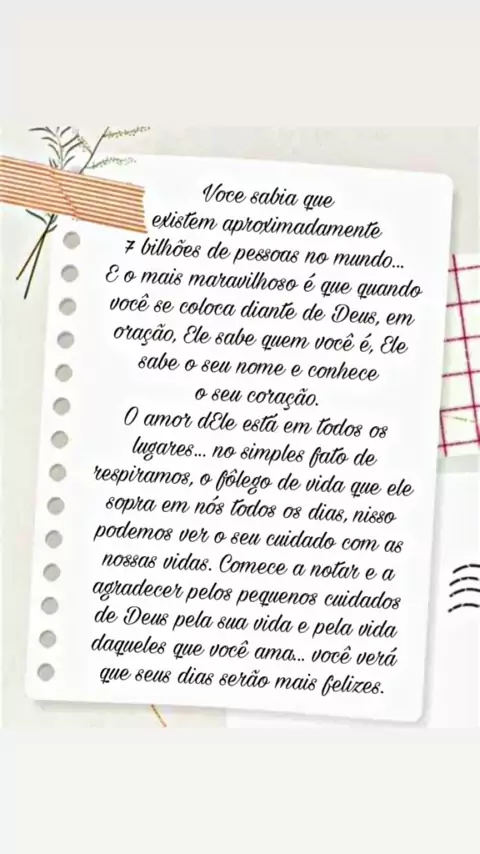 Voce sabia que
existem aproximadamente
7 bilhões de pessoas no mundo...
E o mais maravilhoso é que quando
você se coloca diante de Deus, em
oração, Ele sabe quem você é, Ele
sabe o seu nome e conhece
o seu coração.
O amor dEle está em todos os
lugares... no simples fato de
respiramos, o fôlego de vida que ele
sopra em nós todos os dias, nisso
podemos ver o seu cuidado com as
nossas vidas. Comece a notar e a
agradecer pelos pequenos cuidados
de Deus pela sua vida e pela vida
daqueles que você ama... você verá
que seus dias serão mais felizes.